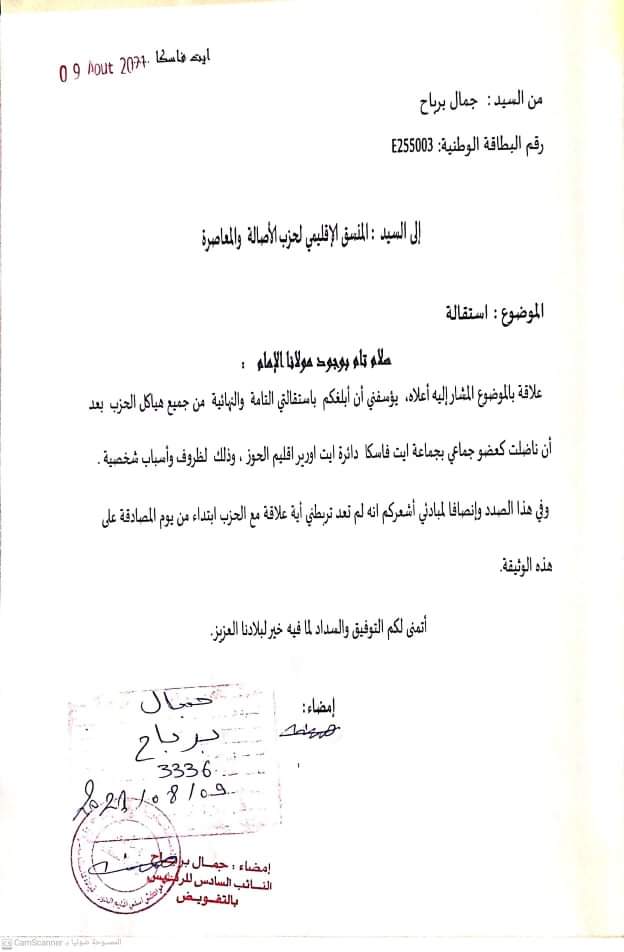 ايت فاسكا 09 Aout 2021
من السيد : جمال برباح
رقم البطاقة الوطنية: E255003
إلى السيد : المنسق الإقليمي لحزب الأصالة والمعاصرة
الموضوع : استقالة
سلام تام بوجود مولانا الإمام :
علاقة بالموضوع المشار إليه أعلاه، يؤسفني أن أبلغكم باستقالتي التامة والنهائية من جميع هياكل الحزب بعد
أن ناضلت كعضو جماعي بجماعة ايت فاسكا دائرة ايت اورير اقليم الحوز ، وذلك لظروف وأسباب شخصية .
وفي هذا الصدد وإنصافا لمبادئي أشعركم انه لم تعد تربطني أية علاقة مع الحزب ابتداء من يوم المصادقة على
هذه الوثيقة.
أتمنى لكم التوفيق والسداد لما فيه خير لبلادنا العزيز.
إمضاء :
جمال
برباح
3336
2021/08/09
إمضاء : جمال برباح
النائب السادس للرئيس
بالتفويض
الممسوحة ضوئيا بـ CamScanner